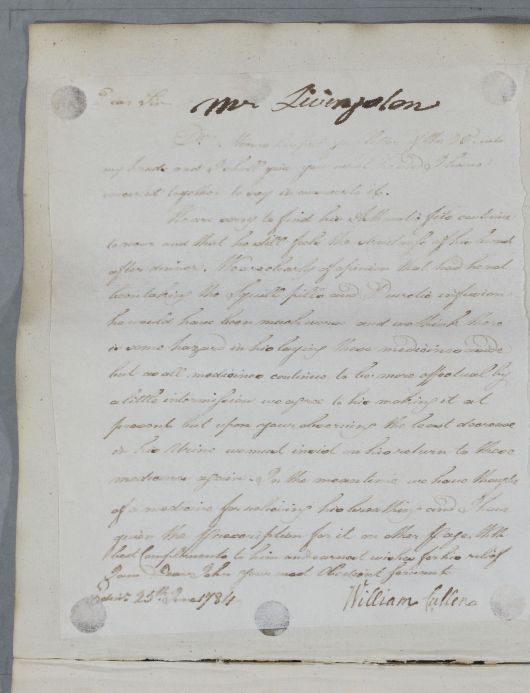 Dear Sir
Mr Livingston
Dr. your letter of the into
my hands and I shall give you what and I have
concert together to say in answer to it.
We are sorry to find his Asthmatic fits continue
to recur and that he still feels the of his breast
after dinner. We are clearly of opinion that had he not
been taking the Squill pills and Diuretic infusion
he would have been much worse and we think there
is some hazard in his laying these medicines aside
but as all medicines continue to be more effectual by
a little intermission we agree to his making it at
present but upon your observing the least decrease
in his Urine we must insist on his return to these
medicines again. In the meantime we have thought
of a medicine for relieving his breathing and I have
given the Prescription for it on other page. With
best Compliments to him and earnest wishes for his relief
I am Dear John your most Obedient Servant
25th June 1784 William Cullen